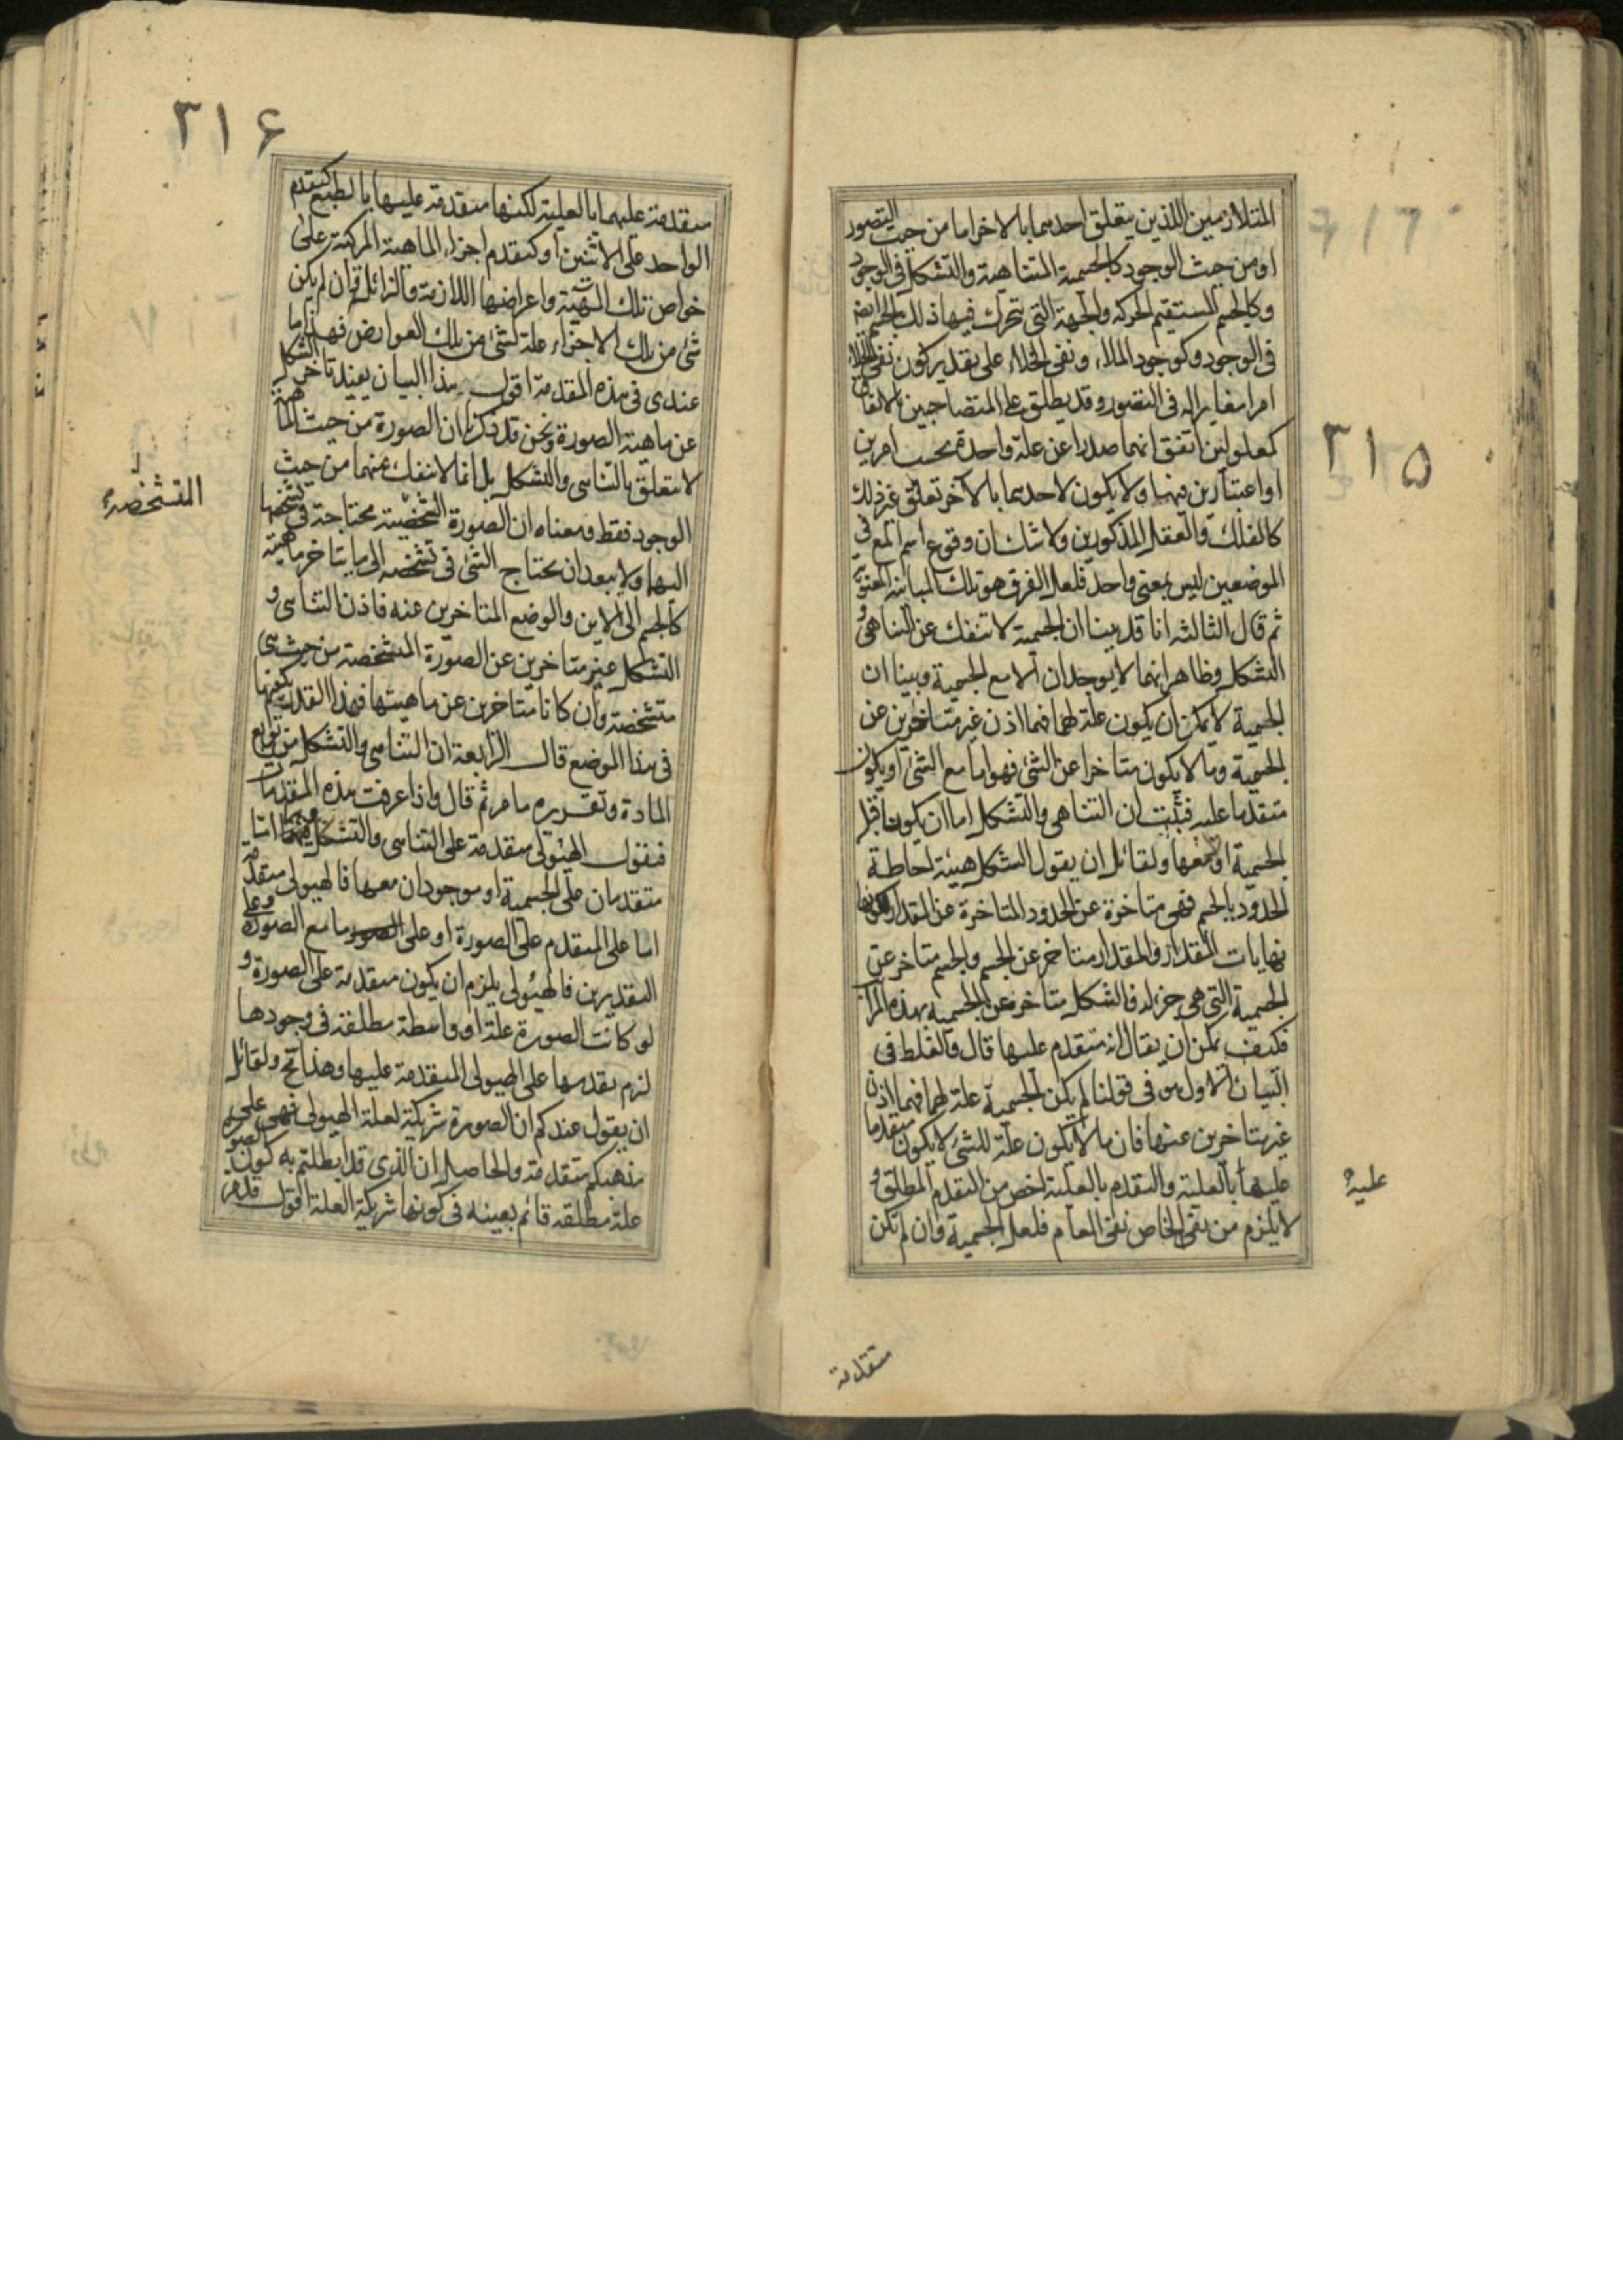 ٣١٥
المتلازمين اللذين يتعلق احدهما بالاخر اما من حيث التصور
او من حيث الوجود كالجسمية المتناهية والتشكل فى الوجود
وكالجسم المستقيم الحركة والجهة التى تتحرك فيها ذلك الجسم ايضا
فى الوجود وكوجود الملاء ونفى الخلاء على تقدير كون نفى الخلاء
امرا مغايرا له فى التصور وقد يطلق على المتصاحبين بالاتفاق
كمعلولين اتفق انهما صدرا عن علة واحدة بحسب امرين
او اعتبارين فيها ولا يكون لاحدهما بالآخر تعلق غير ذلك
كالفلك والعقل المذكورين ولا شك ان وقوع اسم المع فى
الموضعين ليس بمعنى واحد فلعل الفرق هو تلك المباينة المعنوية
ثم قال الثالثة انا قد بينا ان الجسمية لا تنفك عن التناهى و
التشكل وظاهر انهما لا يوجدان الا مع الجسمية وبينا ان
الجسمية لا يمكن ان يكون علة لهما فهما اذن غير متاخرين عن
الجسمية وما لا يكون متاخرا عن الشئ فهو اما مع الشئ او يكون
متقدما عليه فثبت ان التناهى والتشكل اما ان يكونا قبل
الجسمية او معها ولقائل ان يقول الشكل هيئة احاطة
الحدود بالجسم فهى متاخرة عن الحدود المتاخرة عن المقدار لكونها
نهايات المقدار والمقدار متاخر عن الجسم والجسم متاخر عن
الجسمية التى هى جزء له فالشكل متاخر عن الجسمية بهذه المراتب
فكيف يمكن ان يقال انه متقدم عليها قال والغلط فى
البيان الاول هو فى قولنا لم يكن الجسمية علة لهما فهما اذن
غير متاخرين عنها فان ما لا يكون علة للشئ لا يكون متقدما
عليه
عليها بالعلية والتقدم بالعلية اخص من التقدم المطلق و
لا يلزم من نفى الخاص نفى العام فلعل الجسمية وان لم تكن
متقدمة
٣١۶
متقدمة عليهما بالعلية لكنها متقدمة عليها بالطبع كتقدم
الواحد على الاثنين او كتقدم اجزاء الماهية المركبة على
خواص تلك الهيئة واعراضها اللازمة والزائلة وان لم يكن
شئ من تلك الاجزاء علة لشئ من تلك العوارض فهذا ما
عندى فى هذه المقدمة اقول هذا البيان يفيد تاخر الشكل
عن ماهية الصورة ونحن قد ذكرنا ان الصورة من حيث الماهية
لا تتعلق بالتناهى والتشكل بل انما لا تنفك عنهما من حيث
المتشخصة
الوجود فقط ومعناه ان الصورة الشخصية محتاجة فى تشخصها
اليهما ولا يبعد ان يحتاج الشئ فى تشخصه الى ما يتاخر ماهيته
كالجسم الى الاين والوضع المتاخرين عنه فاذن التناهى و
التشكل غير متاخرين عن الصورة المتشخصة من حيث هى
متشخصة وان كانا متاخرين عن ماهيتها فهذا القدر يكفينا
فى هذا الموضع قال الرابعة ان التناهى والتشكل من توابع
المادة وتقريره ما مر ثم قال واذا عرفت هذه المقدمات
فنقول الهيولى متقدمة على التناهى والتشكل وهما اما
متقدمان على الجسمية او موجودان معها فالهيولى متقدمة
اما على المتقدم على الصورة او على ما مع الصورة وعلى
التقديرين فالهيولى يلزم ان يكون متقدمة على الصورة و
لو كانت الصورة علة او واسطة مطلقة فى وجودها
لزم تقدمها على الهيولى المتقدمة عليها وهذا مح ولقائل
ان يقول عندكم ان الصورة شريكة لعلة الهيولى فهى على
مذهبكم متقدمة والحاصل ان الذى قد ابطلتم به كون الصورة
علة مطلقة قائم بعينه فى كونها شريكة العلة اقول قد مر